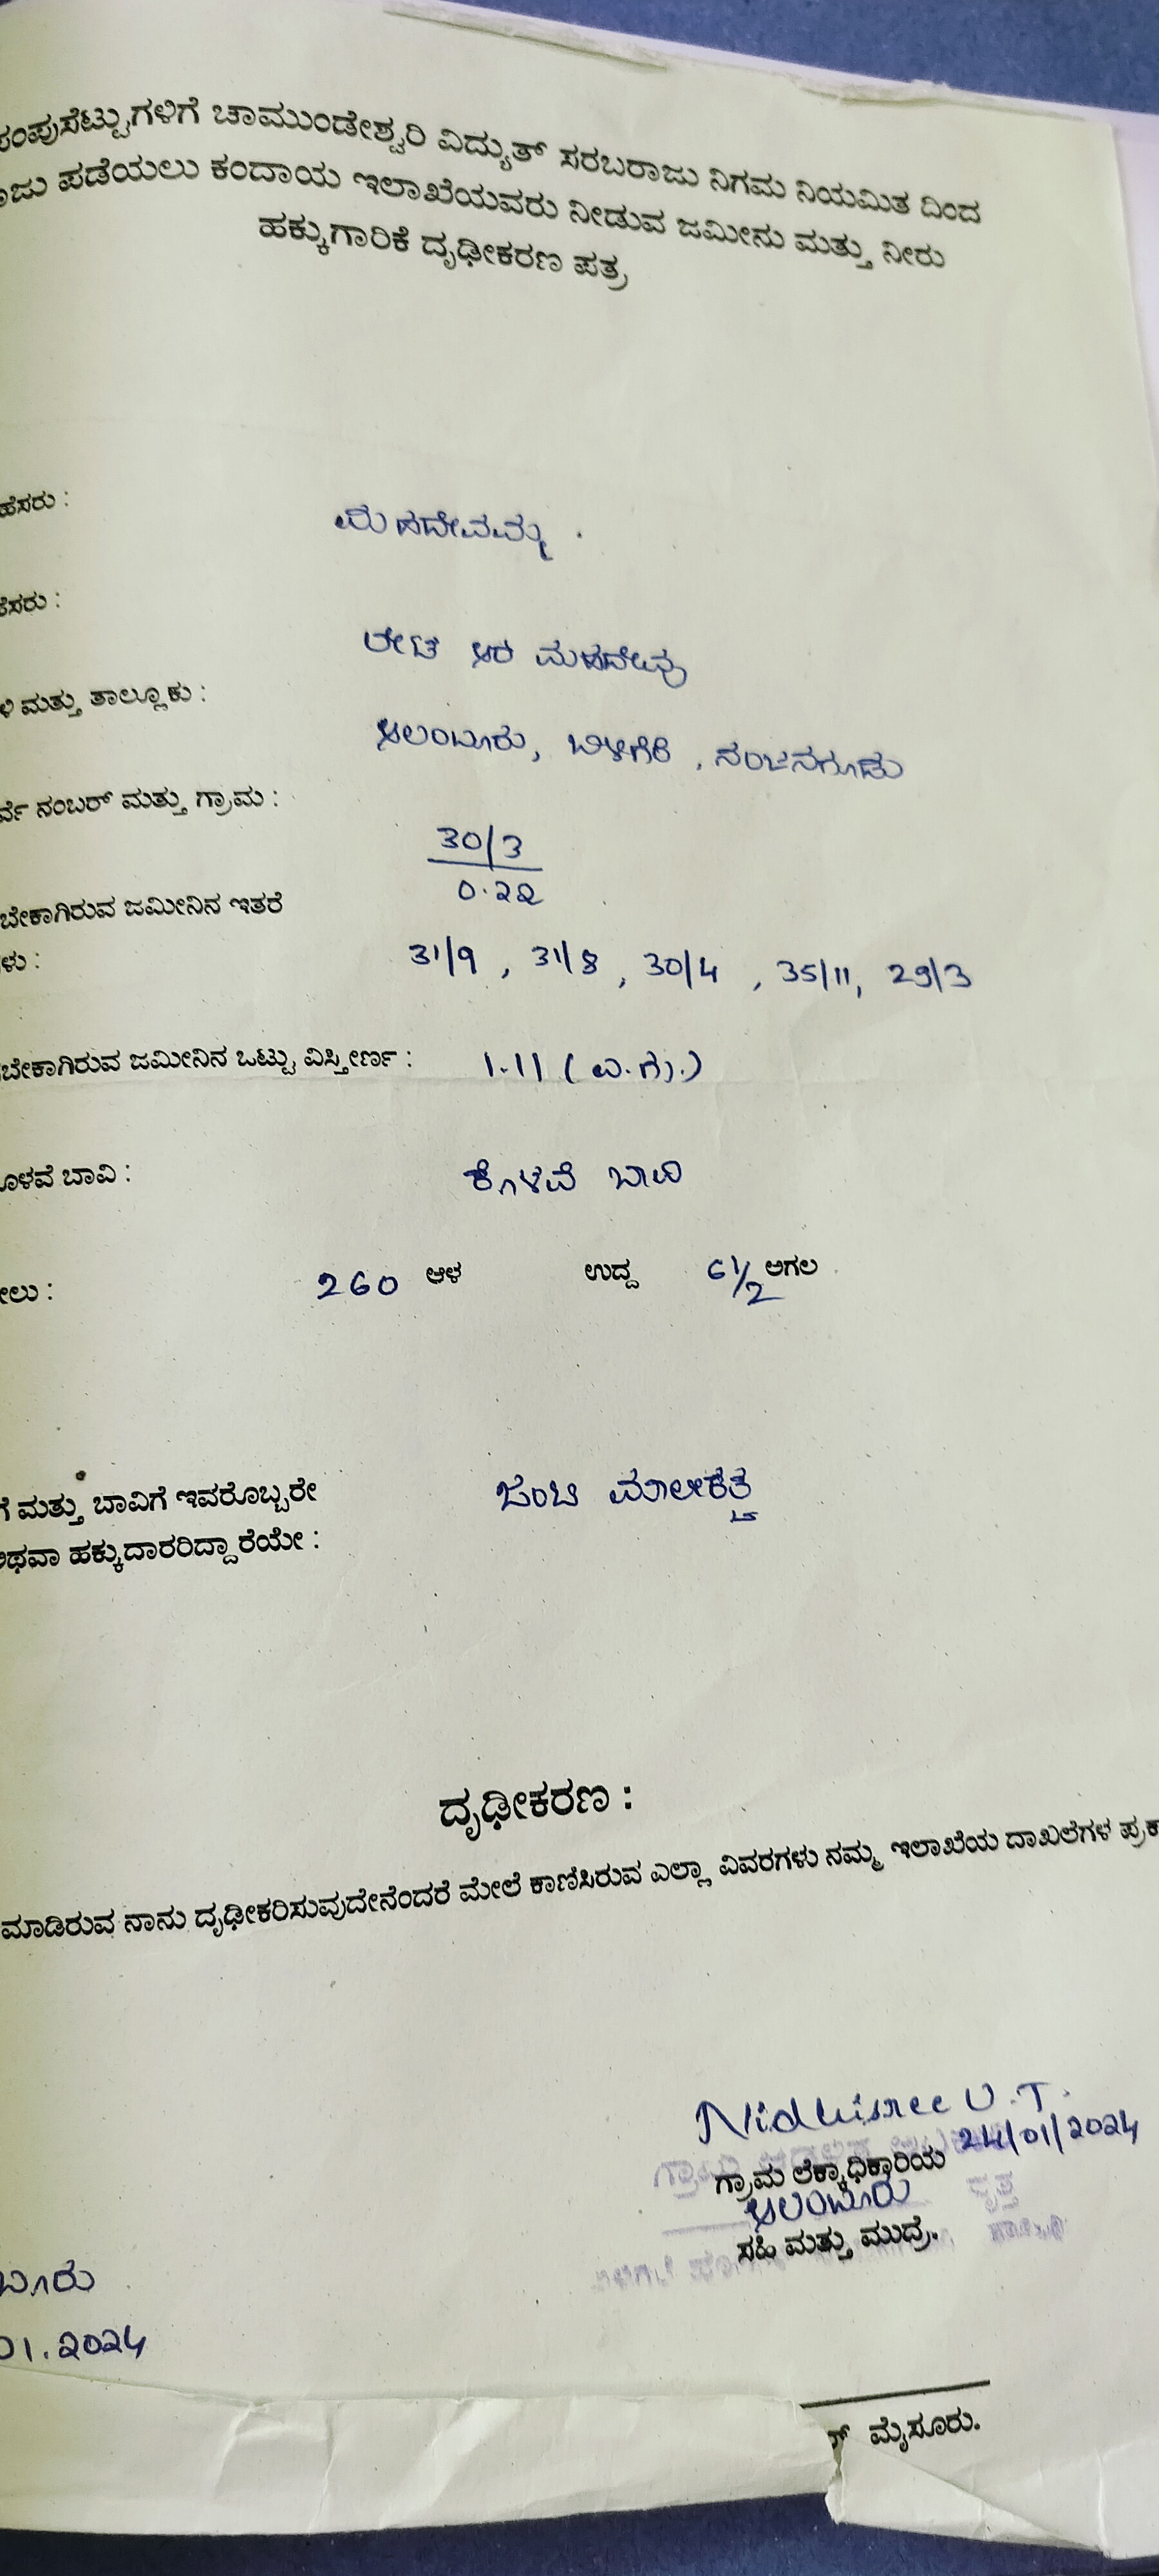 ಪಂಪುಸೆಟ್ಟುಗಳಿಗೆ ಚಾಮುಂಡೇಶ್ವರಿ ವಿದ್ಯುತ್ ಸರಬರಾಜು ನಿಗಮ ನಿಯಮಿತ ದಿಂದ
ಪಡೆಯಲು ಕಂದಾಯ ಇಲಾಖೆಯವರು ನೀಡುವ ಜಮೀನು ಮತ್ತು ನೀರು
ಹಕ್ಕುಗಾರಿಕೆ ದೃಢೀಕರಣ ಪತ್ರ
ಹೆಸರು : ಮಹದೇವಮ್ಮ .
ಹೆಸರು : ಲೇಟ್ ಮಹದೇವು
ಮತ್ತು ತಾಲ್ಲೂಕು : ಆಲಂಬೂರು, ಬಿಳಿಗೆರೆ , ನಂಜನಗೂಡು
ರ್ವೆ ನಂಬರ್ ಮತ್ತು ಗ್ರಾಮ : 30/3
0.22
ಬೇಕಾಗಿರುವ ಜಮೀನಿನ ಇತರೆ
ಳು : 31/9 , 31/8 , 30/4 , 35/11, 29/3
ಬೇಕಾಗಿರುವ ಜಮೀನಿನ ಒಟ್ಟು ವಿಸ್ತೀರ್ಣ : 1-11 ( ಎ.ಗು.)
ೊಳವೆ ಬಾವಿ : ಕೊಳವೆ ಬಾವಿ
ೇಲು : 260 ಆಳ ಉದ್ದ 6 1/2 ಅಗಲ
ಗೆ ಮತ್ತು ಬಾವಿಗೆ ಇವರೊಬ್ಬರೇ ಜಂಟಿ ಮಾಲೀಕತ್ವ
ಅಥವಾ ಹಕ್ಕುದಾರರಿದ್ದಾರೆಯೇ :
ದೃಢೀಕರಣ :
ಮಾಡಿರುವ ನಾನು ದೃಢೀಕರಿಸುವುದೇನೆಂದರೆ ಮೇಲೆ ಕಾಣಿಸಿರುವ ಎಲ್ಲಾ ವಿವರಗಳು ನಮ್ಮ ಇಲಾಖೆಯ ದಾಖಲೆಗಳ ಪ್ರಕಾ
Nidhisree U.T.
24/01/2024
ಗ್ರಾಮ ಲೆಕ್ಕಾಧಿಕಾರಿಯ
ಆಲಂಬೂರು
ಸಹಿ ಮತ್ತು ಮುದ್ರೆ.
ಬೂರು
01.2024
ಮೈಸೂರು.